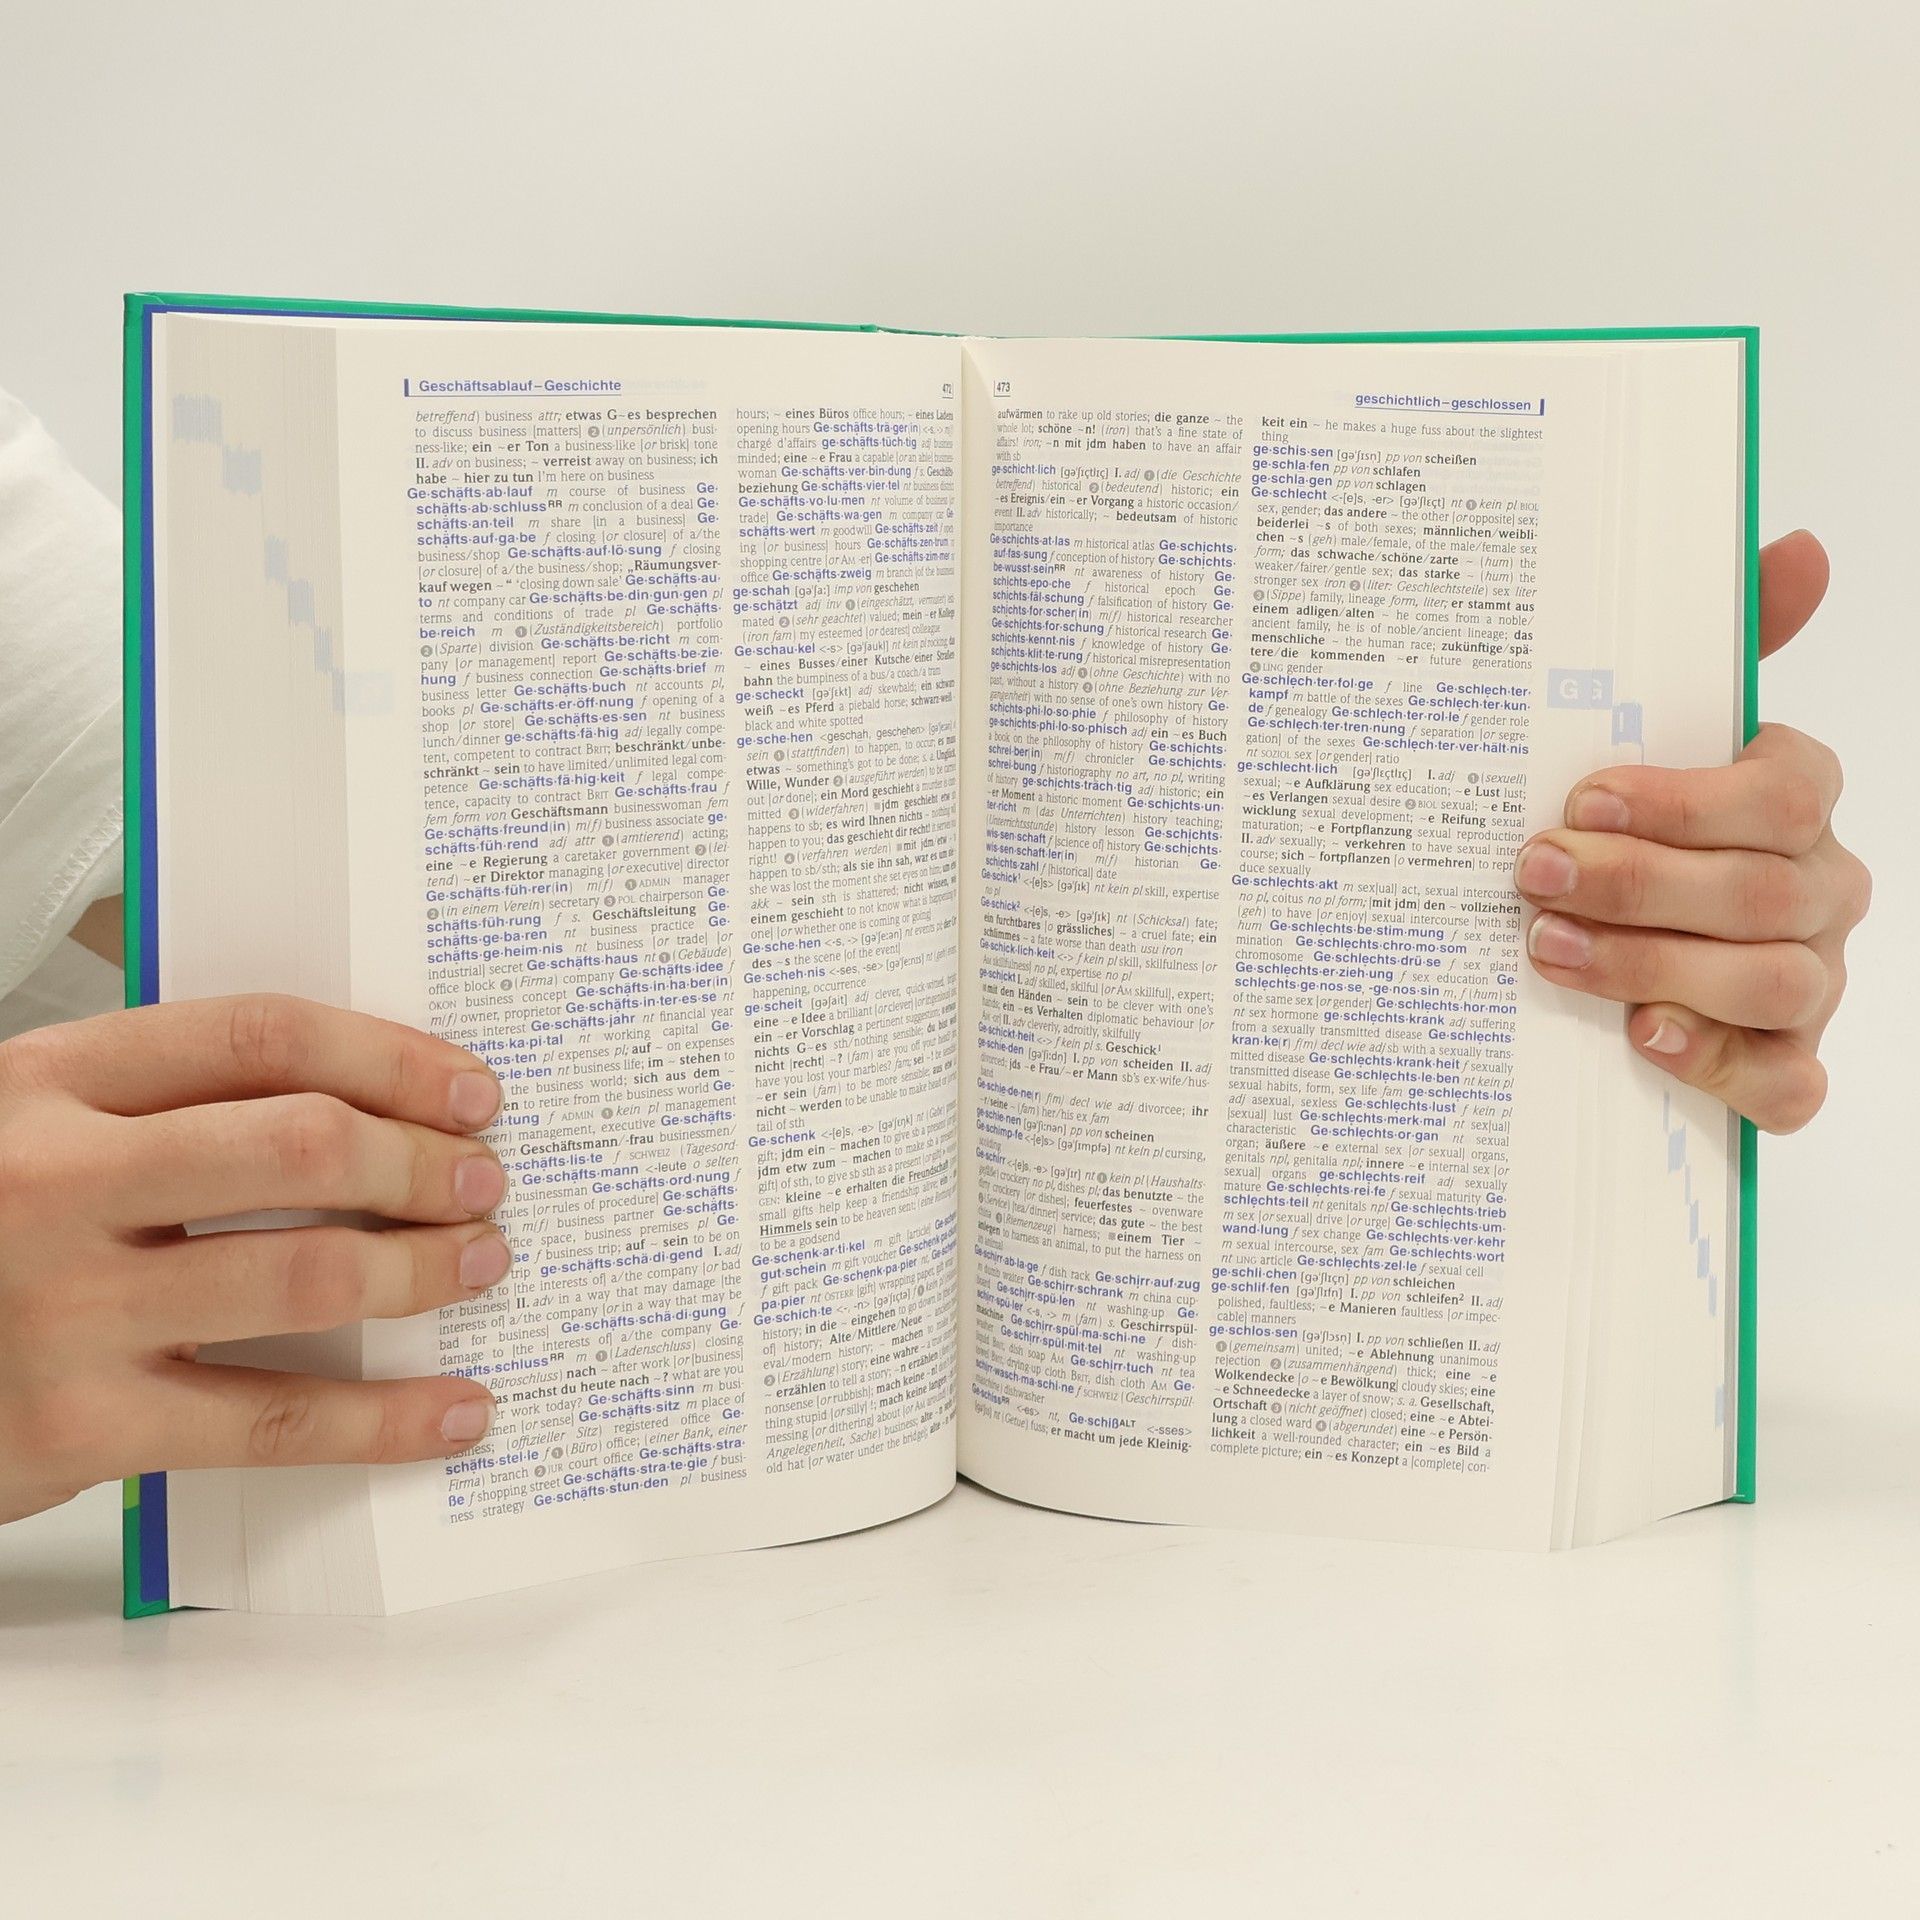 Geschäftsablauf–Geschichte
472
betreffend) business attr; etwas G~es besprechen
to discuss business [matters] ❷ (unpersönlich) busi-
ness-like; ein ~er Ton a business-like [or brisk] tone
II. adv on business; ~ verreist away on business; ich
habe ~ hier zu tun I'm here on business
Ge·schäfts·ab·lauf m course of business Ge·
schäfts·ab·schlussRR m conclusion of a deal Ge·
schäfts·an·teil m share [in a business] Ge·
schäfts·auf·ga·be f closing [or closure] of a/the
business/shop Ge·schäfts·auf·lö·sung f closing
[or closure] of a/the business/shop; „Räumungsver-
kauf wegen ~" 'closing down sale' Ge·schäfts·au·
to nt company car Ge·schäfts·be·din·gun·gen pl
terms and conditions of trade pl Ge·schäfts·
be·reich m ❶ (Zuständigkeitsbereich) portfolio
❷ (Sparte) division Ge·schäfts·be·richt m com-
pany [or management] report Ge·schäfts·be·zie·
hung f business connection Ge·schäfts·brief m
business letter Ge·schäfts·buch nt accounts pl,
books pl Ge·schäfts·er·öff·nung f opening of a
shop [or store] Ge·schäfts·es·sen nt business
lunch/dinner ge·schäfts·fä·hig adj legally compe-
tent, competent to contract BRIT; beschränkt/unbe-
schränkt ~ sein to have limited/unlimited legal com-
petence Ge·schäfts·fä·hig·keit f legal compe-
tence, capacity to contract BRIT Ge·schäfts·frau f
fem form von Geschäftsmann businesswoman fem
Ge·schäfts·freund(in) m(f) business associate ge·
schäfts·füh·rend adj attr ❶ (amtierend) acting;
eine ~e Regierung a caretaker government ❷ (lei-
tend) ~er Direktor managing [or executive] director
Ge·schäfts·füh·rer(in) m(f) ❶ ADMIN manager
❷ (in einem Verein) secretary ❸ POL chairperson Ge·
schäfts·füh·rung f s. Geschäftsleitung Ge·
schäfts·ge·ba·ren nt business practice Ge·
schäfts·ge·heim·nis nt business [or trade] [or
industrial] secret Ge·schäfts·haus nt ❶ (Gebäude)
office block ❷ (Firma) company Ge·schäfts·idee f
ÖKON business concept Ge·schäfts·in·ha·ber(in)
m(f) owner, proprietor Ge·schäfts·in·ter·es·se nt
business interest Ge·schäfts·jahr nt financial year
schäfts·ka·pi·tal nt working capital Ge·
kos·ten pl expenses pl; auf ~ on expenses
s·le·ben nt business life; im ~ stehen to
the business world; sich aus dem ~
en to retire from the business world Ge·
ei·tung f ADMIN ❶ kein pl management
onen) management, executive Ge·schäfts·
von Geschäftsmann/-frau businessmen/
e·schäfts·lis·te f SCHWEIZ (Tagesord-
a Ge·schäfts·mann <-leute o selten
businessman Ge·schäfts·ord·nung f
al rules [or rules of procedure] Ge·schäfts·
n) m(f) business partner Ge·schäfts·
ffice space, business premises pl Ge·
se f business trip; auf ~ sein to be on
trip ge·schäfts·schä·di·gend I. adj
ging to [the interests of] a/the company [or bad
for business] II. adv in a way that may damage [the
interests of] a/the company [or in a way that may be
bad for business] Ge·schäfts·schä·di·gung f
damage to [the interests of] a/the company Ge·
schäfts·schlussRR m ❶ (Ladenschluss) closing
(Büroschluss) nach ~ after work [or [business]
as machst du heute nach ~? what are you
er work today? Ge·schäfts·sinn m busi-
men [or sense] Ge·schäfts·sitz m place of
business; (offizieller Sitz) registered office Ge·
schäfts·stel·le f ❶ (Büro) office; (einer Bank, einer
Firma) branch ❷ JUR court office Ge·schäfts·stra·
ße f shopping street Ge·schäfts·stra·te·gie f busi-
ness strategy Ge·schäfts·stun·den pl business
hours; ~ eines Büros office hours; ~ eines Ladens
opening hours Ge·schäfts·trä·ger(in)
chargé d'affairs ge·schäfts·tüch·tig adj business
minded; eine ~e Frau a capable [or an able] business-
woman Ge·schäfts·ver·bin·dung f s. Geschäfts-
beziehung Ge·schäfts·vier·tel nt business district
Ge·schäfts·vo·lu·men nt volume of business [or
trade] Ge·schäfts·wa·gen m company car Ge·
schäfts·wert m goodwill Ge·schäfts·zeit f open-
ing [or business] hours Ge·schäfts·zen·trum nt
shopping centre [or AM -er] Ge·schäfts·zim·mer nt
office Ge·schäfts·zweig m branch [of the business]
ge·schah [gəˈʃa:] imp von geschehen
ge·schätzt adj inv ❶ (eingeschätzt, vermutet) esti-
mated ❷ (sehr geachtet) valued; mein ~er Kollege
(iron fam) my esteemed [or dearest] colleague
Ge·schau·kel <-s> [gəˈʃaukl̩] nt kein pl rocking, das
~ eines Busses/einer Kutsche/einer Straßen
bahn the bumpiness of a bus/a coach/a tram
ge·scheckt [gəˈʃɛkt] adj skewbald; ein schwarz
weiß ~es Pferd a piebald horse; schwarz-weiß ~
black and white spotted
ge·sche·hen <geschah, geschehen> [gəˈʃe:ən] vi
sein ❶ (stattfinden) to happen, to occur; es muss
etwas ~ something's got to be done; s. a. Unglück,
Wille, Wunder ❷ (ausgeführt werden) to be carried
out [or done]; ein Mord geschieht a murder is com-
mitted ❸ (widerfahren) ■ jdm geschieht etw sth
happens to sb; es wird Ihnen nichts ~ nothing will
happen to you; das geschieht dir recht! it serves you
right! ❹ (verfahren werden) ■ mit jdm/etw ~
happen to sb/sth; als sie ihn sah, war es um sie
she was lost the moment she set eyes on him; um etw
akk ~ sein sth is shattered; nicht wissen, wie
einem geschieht to not know what is happening [to
one] [or whether one is coming or going]
Ge·sche·hen <-s, -> [gəˈʃe:ən] nt events pl; der Ort
des ~s the scene [of the event]
Ge·scheh·nis <-ses, -se> [gəˈʃe:nɪs] nt (geh) event,
happening, occurrence
ge·scheit [gəˈʃait] adj clever, quick-witted, bright
eine ~e Idee a brilliant [or clever] [or ingenious] idea
ein ~er Vorschlag a pertinent suggestion;
nichts G~es sth/nothing sensible; du bist wohl
nicht [recht] ~? (fam) are you off your head?
have you lost your marbles? fam; sei ~! be sensible!
~er sein (fam) to be more sensible; aus etw
nicht ~ werden to be unable to make head or
tail of sth
Ge·schenk <-[e]s, -e> [gəˈʃɛŋk] nt (Gabe) present,
gift; jdm ein ~ machen to give sb a present [or gift]
jdm etw zum ~ machen to make sb a present [or
gift] of sth, to give sb sth as a present [or gift]
GEN: kleine ~e erhalten die Freundschaft
small gifts help keep a friendship alive; ein ~
Himmels sein to be heaven sent;
to be a godsend
Ge·schenk·ar·ti·kel m gift [article]
gut·schein m gift voucher Ge·schenk·pa·ckung
f gift pack Ge·schenk·pa·pier nt
pa·pier nt ÖSTERR [gift] wrapping paper, gift wrap
Ge·schich·te <-, -n> [gəˈʃɪçtə] f ❶ kein pl
history; in die ~ eingehen to go down in the
of] history; Alte/Mittlere/Neue ~ ancient/
eval/modern history; ~ machen to make
❷ (Erzählung) story; eine wahre ~ a true
~ erzählen to tell a story; ~n erzählen
nonsense [or rubbish]; mach keine ~n!
thing stupid [or silly]!; mach keine langen
messing [or dithering] about [or AM around]!
Angelegenheit, Sache) business; alte ~n
old hat [or water under the bridge];
473
geschichtlich–geschlossen
aufwärmen to rake up old stories; die ganze ~ the
whole lot; schöne ~n! (iron) that's a fine state of
affairs! iron; ~n mit jdm haben to have an affair
with sb
ge·schicht·lich [gəˈʃɪçtlɪç] I. adj ❶ (die Geschichte
betreffend) historical ❷ (bedeutend) historic; ein
~es Ereignis/ein ~er Vorgang a historic occasion/
event II. adv historically; ~ bedeutsam of historic
importance
Ge·schichts·at·las m historical atlas Ge·schichts·
auf·fas·sung f conception of history Ge·schichts·
be·wusst·seinRR nt awareness of history Ge·
schichts·epo·che f historical epoch Ge·
schichts·fäl·schung f falsification of history Ge·
schichts·for·scher(in) m(f) historical researcher
Ge·schichts·for·schung f historical research Ge·
schichts·kennt·nis f knowledge of history Ge·
schichts·klit·te·rung f historical misrepresentation
ge·schichts·los adj ❶ (ohne Geschichte) with no
past, without a history ❷ (ohne Beziehung zur Ver-
gangenheit) with no sense of one's own history Ge·
schichts·phi·lo·so·phie f philosophy of history
ge·schichts·phi·lo·so·phisch adj ein ~es Buch
a book on the philosophy of history Ge·schichts·
schrei·ber(in) m(f) chronicler Ge·schichts·
schrei·bung f historiography no art, no pl, writing
of history ge·schichts·träch·tig adj historic; ein
~er Moment a historic moment Ge·schichts·un·
ter·richt m (das Unterrichten) history teaching;
(Unterrichtsstunde) history lesson Ge·schichts·
wis·sen·schaft f [science of] history Ge·schichts·
wis·sen·schaft·ler(in) m(f) historian Ge·
schichts·zahl f [historical] date
Ge·schick¹ <-[e]s> [gəˈʃɪk] nt kein pl skill, expertise
no pl
Ge·schick² <-[e]s, -e> [gəˈʃɪk] nt (Schicksal) fate;
ein furchtbares [o grässliches] ~ a cruel fate; ein
schlimmes ~ a fate worse than death usu iron
Ge·schick·lich·keit <-> f kein pl skill, skilfulness [or
AM skillfulness] no pl, expertise no pl
ge·schickt I. adj skilled, skilful [or AM skillful], expert;
■ mit den Händen ~ sein to be clever with one's
hands; ein ~es Verhalten diplomatic behaviour [or
AM -or] II. adv cleverly, adroitly, skilfully
Ge·schickt·heit <-> f kein pl s. Geschick¹
ge·schie·den [gəˈʃi:dn̩] I. pp von scheiden II. adj
divorced; jds ~e Frau/~er Mann sb's ex-wife/hus-
band
Ge·schie·de·ne(r) f(m) decl wie adj divorcee; ihr
~r/seine ~ (fam) her/his ex fam
ge·schie·nen [gəˈʃi:nən] pp von scheinen
Ge·schimp·fe <-[e]s> [gəˈʃɪmpfə] nt kein pl cursing,
scolding
Ge·schirr <-[e]s, -e> [gəˈʃɪr] nt ❶ kein pl (Haushalts-
gefäße) crockery no pl, dishes pl; das benutzte ~ the
dirty crockery [or dishes]; feuerfestes ~ ovenware
❷ (Service) [tea/dinner] service; das gute ~ the best
china ❸ (Riemenzeug) harness; ■ einem Tier ~
anlegen to harness an animal, to put the harness on
an animal
Ge·schirr·ab·la·ge f dish rack Ge·schirr·auf·zug
m dumb waiter Ge·schirr·schrank m china cup-
board Ge·schirr·spü·len nt washing-up Ge·
schirr·spü·ler <-s, -> m (fam) s. Geschirrspül-
maschine Ge·schirr·spül·ma·schi·ne f dish-
washer Ge·schirr·spül·mit·tel nt washing-up
liquid BRIT, dish soap AM Ge·schirr·tuch nt tea
towel BRIT, drying-up cloth BRIT, dish cloth AM Ge·
schirr·wasch·ma·schi·ne f SCHWEIZ (Geschirrspül-
maschine) dishwasher
Ge·schissRR <-es> nt, Ge·schißALT <-sses>
[gəˈʃɪs] nt (Getue) fuss; er macht um jede Kleinig-
keit ein ~ he makes a huge fuss about the slightest
thing
ge·schis·sen [gəˈʃɪsn̩] pp von scheißen
ge·schla·fen pp von schlafen
ge·schla·gen pp von schlagen
Ge·schlecht <-[e]s, -er> [gəˈʃlɛçt] nt ❶ kein pl BIOL
sex, gender; das andere ~ the other [or opposite] sex;
beiderlei ~s of both sexes; männlichen/weibli-
chen ~s (geh) male/female, of the male/female sex
form; das schwache/schöne/zarte ~ (hum) the
weaker/fairer/gentle sex; das starke ~ (hum) the
stronger sex iron ❷ (liter: Geschlechtsteile) sex liter
❸ (Sippe) family, lineage form, liter; er stammt aus
einem adligen/alten ~ he comes from a noble/
ancient family, he is of noble/ancient lineage; das
menschliche ~ the human race; zukünftige/spä-
tere/die kommenden ~er future generations
❹ LING gender
Ge·schlech·ter·fol·ge f line Ge·schlech·ter·
kampf m battle of the sexes Ge·schlech·ter·kun·
de f genealogy Ge·schlech·ter·rol·le f gender role
Ge·schlech·ter·tren·nung f separation [or segre-
gation] of the sexes Ge·schlech·ter·ver·hält·nis
nt SOZIOL sex [or gender] ratio
ge·schlecht·lich [gəˈʃlɛçtlɪç] I. adj ❶ (sexuell)
sexual; ~e Aufklärung sex education; ~e Lust lust;
~es Verlangen sexual desire ❷ BIOL sexual; ~e Ent-
wicklung sexual development; ~e Reifung sexual
maturation; ~e Fortpflanzung sexual reproduction
II. adv sexually; ~ verkehren to have sexual inter-
course; sich ~ fortpflanzen [o vermehren] to repro-
duce sexually
Ge·schlechts·akt m sex[ual] act, sexual intercourse
no pl, coitus no pl form; [mit jdm] den ~ vollziehen
(geh) to have [or enjoy] sexual intercourse [with sb]
hum Ge·schlechts·be·stim·mung f sex deter-
mination Ge·schlechts·chro·mo·som nt sex
chromosome Ge·schlechts·drü·se f sex gland
Ge·schlechts·er·zieh·ung f sex education Ge·
schlechts·ge·nos·se, -ge·nos·sin m, f (hum) sb
of the same sex [or gender] Ge·schlechts·hor·mon
nt sex hormone ge·schlechts·krank adj suffering
from a sexually transmitted disease Ge·schlechts·
kran·ke(r) f(m) decl wie adj sb with a sexually trans-
mitted disease Ge·schlechts·krank·heit f sexually
transmitted disease Ge·schlechts·le·ben nt kein pl
sexual habits, form, sex life fam ge·schlechts·los
adj asexual, sexless Ge·schlechts·lust f kein pl
[sexual] lust Ge·schlechts·merk·mal nt sex[ual]
characteristic Ge·schlechts·or·gan nt sexual
organ; äußere ~e external sex [or sexual] organs,
genitals npl, genitalia npl; innere ~e internal sex [or
sexual] organs ge·schlechts·reif adj sexually
mature Ge·schlechts·rei·fe f sexual maturity Ge·
schlechts·teil nt genitals npl Ge·schlechts·trieb
m sex [or sexual] drive [or urge] Ge·schlechts·um·
wand·lung f sex change Ge·schlechts·ver·kehr
m sexual intercourse, sex fam Ge·schlechts·wort
nt LING article Ge·schlechts·zel·le f sexual cell
ge·schli·chen [gəˈʃlɪçn̩] pp von schleichen
ge·schlif·fen [gəˈʃlɪfn̩] I. pp von schleifen² II. adj
polished, faultless; ~e Manieren faultless [or impec-
cable] manners
ge·schlos·sen [gəˈʃlɔsn̩] I. pp von schließen II. adj
❶ (gemeinsam) united; ~e Ablehnung unanimous
rejection ❷ (zusammenhängend) thick; eine ~e
Wolkendecke [o ~e Bewölkung] cloudy skies; eine
~e Schneedecke a layer of snow; s. a. Gesellschaft,
Ortschaft ❸ (nicht geöffnet) closed; eine ~e Abtei-
lung a closed ward ❹ (abgerundet) eine ~e Persön-
lichkeit a well-rounded character; ein ~es Bild a
complete picture; ein ~es Konzept a [complete] con-
G G